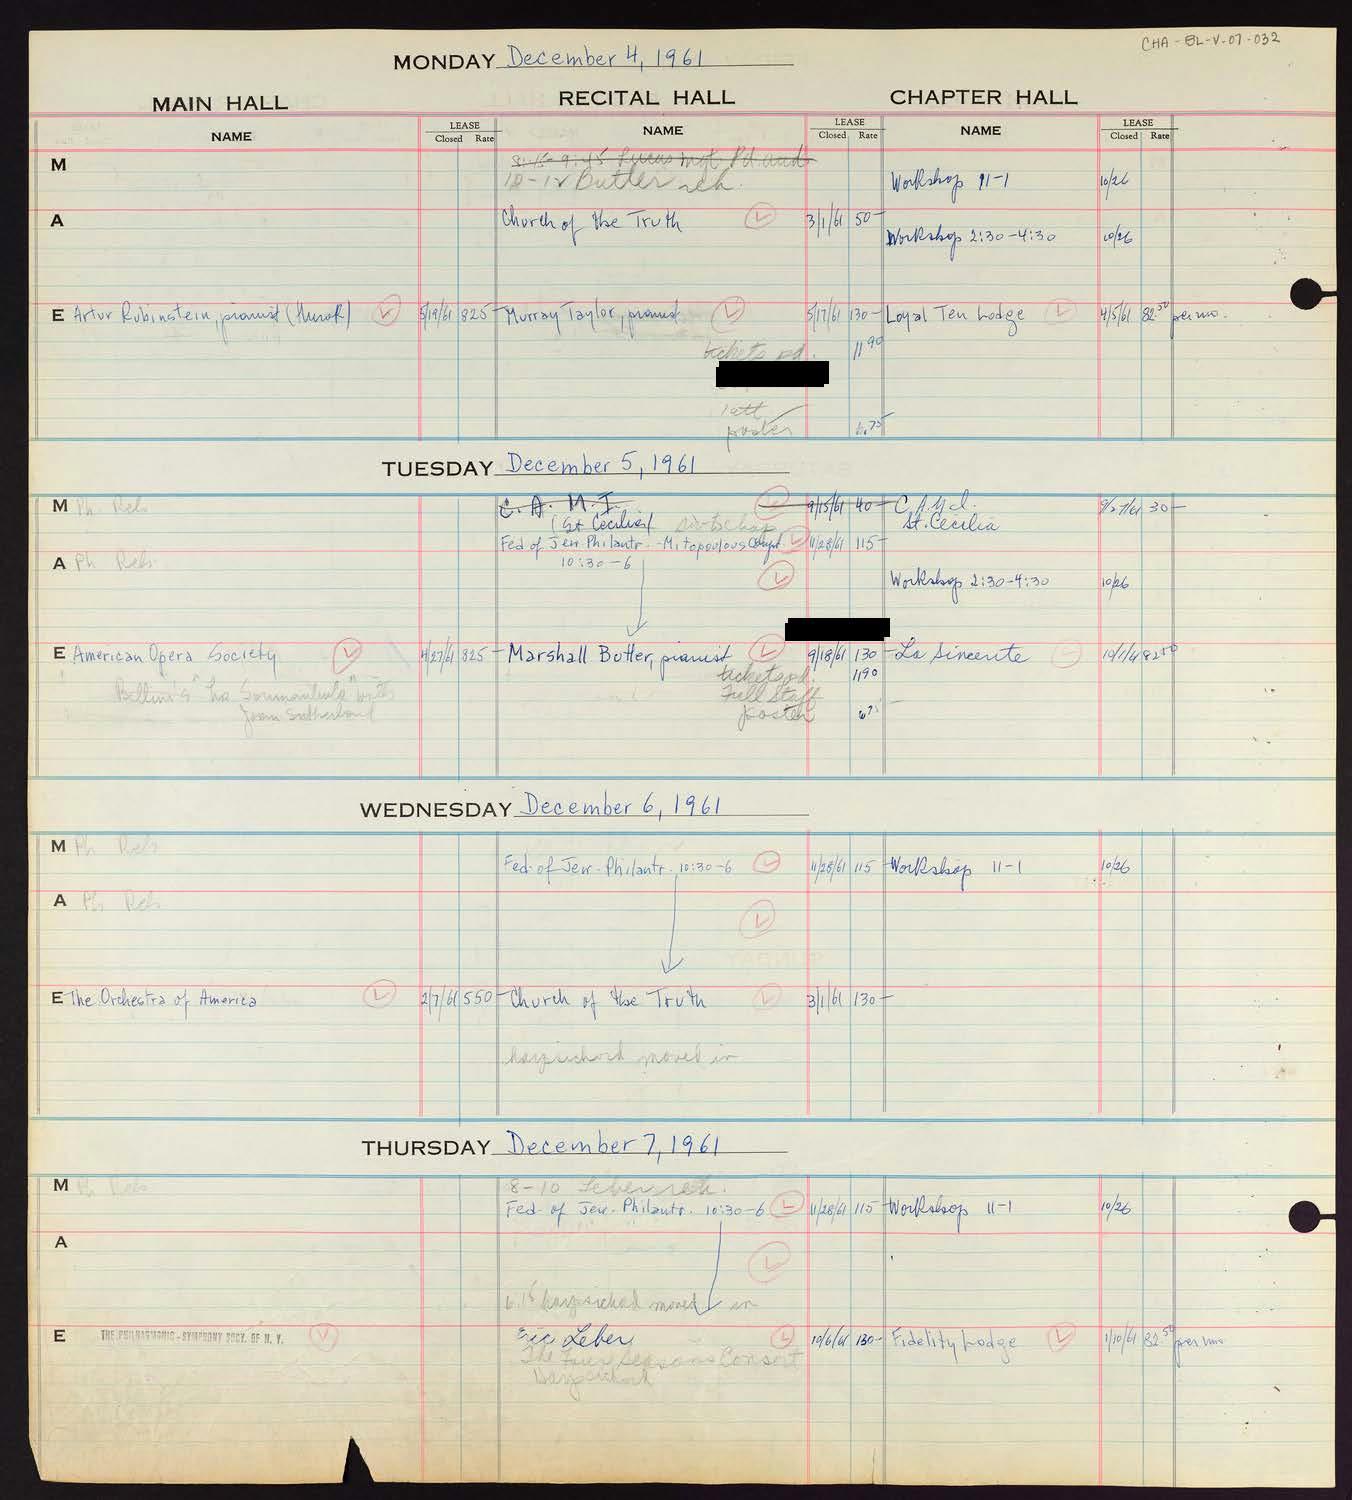 CHA-BL-V-07-032
MONDAY December 4, 1961
MAIN HALL RECITAL HALL CHAPTER HALL
NAME LEASE Closed Rate NAME LEASE Closed Rate NAME LEASE Closed Rate
M 8:15-9:45 Lucas mgt. Pd. and
10-12 Butler reh. Workshop 11-1 10/26
A Church of the Truth 3/1/61 50-
Workshop 2:30-4:30 10/26
E Artur Rubinstein, pianist (Hurok) 5/19/61 825- Murray Taylor, pianist 5/17/61 130- Loyal Ten Lodge 4/5/61 82.50 per mo.
tickets pd. 11 90
poster 6.75
TUESDAY December 5, 1961
M Ph. Reh C. A. M. I. 9/15/61 40- C.A.M.I. 9/27/61 30-
(St Cecilia) St. Cecilia
Fed of Jew. Philantr. - Mitopoulous Compt. 11/28/61 115-
A Ph Reh 10:30-6
Workshop 2:30-4:30 10/26
E American Opera Society 4/27/61 825- Marshall Butler, pianist 9/18/61 130- La Sincerite 82 50
tickets pd. 11 90
Bellini's "La Sonnambula" with Full Staff
Joan Sutherland poster 6 75
WEDNESDAY December 6, 1961
M Ph Reh
Fed. of Jew. Philantr. 10:30-6 11/28/61 115- Workshop 11-1 10/26
A Ph Reh
E The Orchestra of America 2/7/61 550- Church of the Truth 3/1/61 130-
harpsichord moved in
THURSDAY December 7, 1961
M Ph Reh 8-10 Leber reh.
Fed. of Jew. Philantr. 10:30-6 11/28/61 115- Workshop 11-1 10/26
A
6:15 harpsichod moved in
E THE PHILHARMONIC-SYMPHONY SOCY. OF N. Y. Eric Leber 10/6/61 130- Fidelity Lodge 1/10/61 82.50 per mo
The Four Seasons Consort
Harpsichord